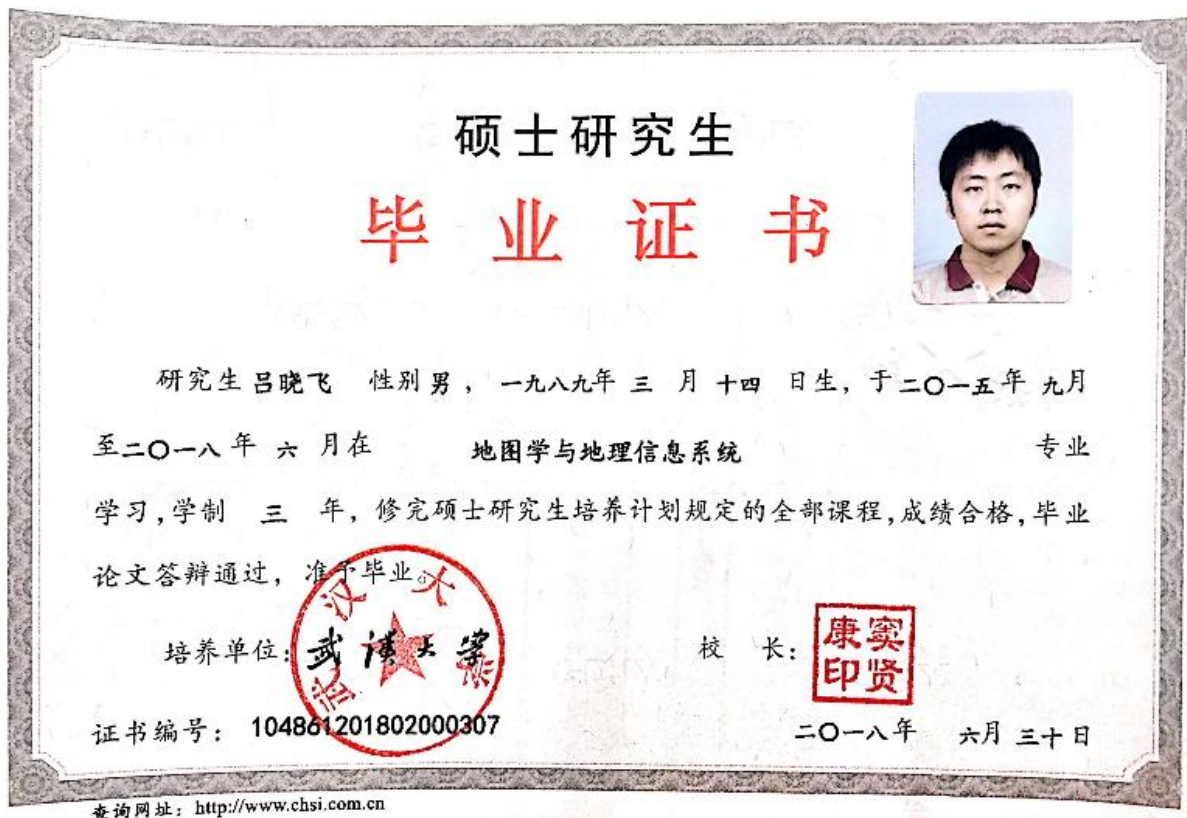 硕士研究生
毕业证书
研究生 吕晓飞 性别 男 , 一九八九年 三 月 十四 日生, 于二〇一五年 九月
至二〇一八 年 六 月在 地图学与地理信息系统 专业
学习,学制 三 年, 修完硕士研究生培养计划规定的全部课程,成绩合格,毕业
论文答辩通过, 准予毕业。
武汉大学
培养单位: 武漢大学
校 长:
窦贤康印
证书编号: 104861201802000307
二〇一八年 六月 三十日
查询网址: http://www.chsi.com.cn